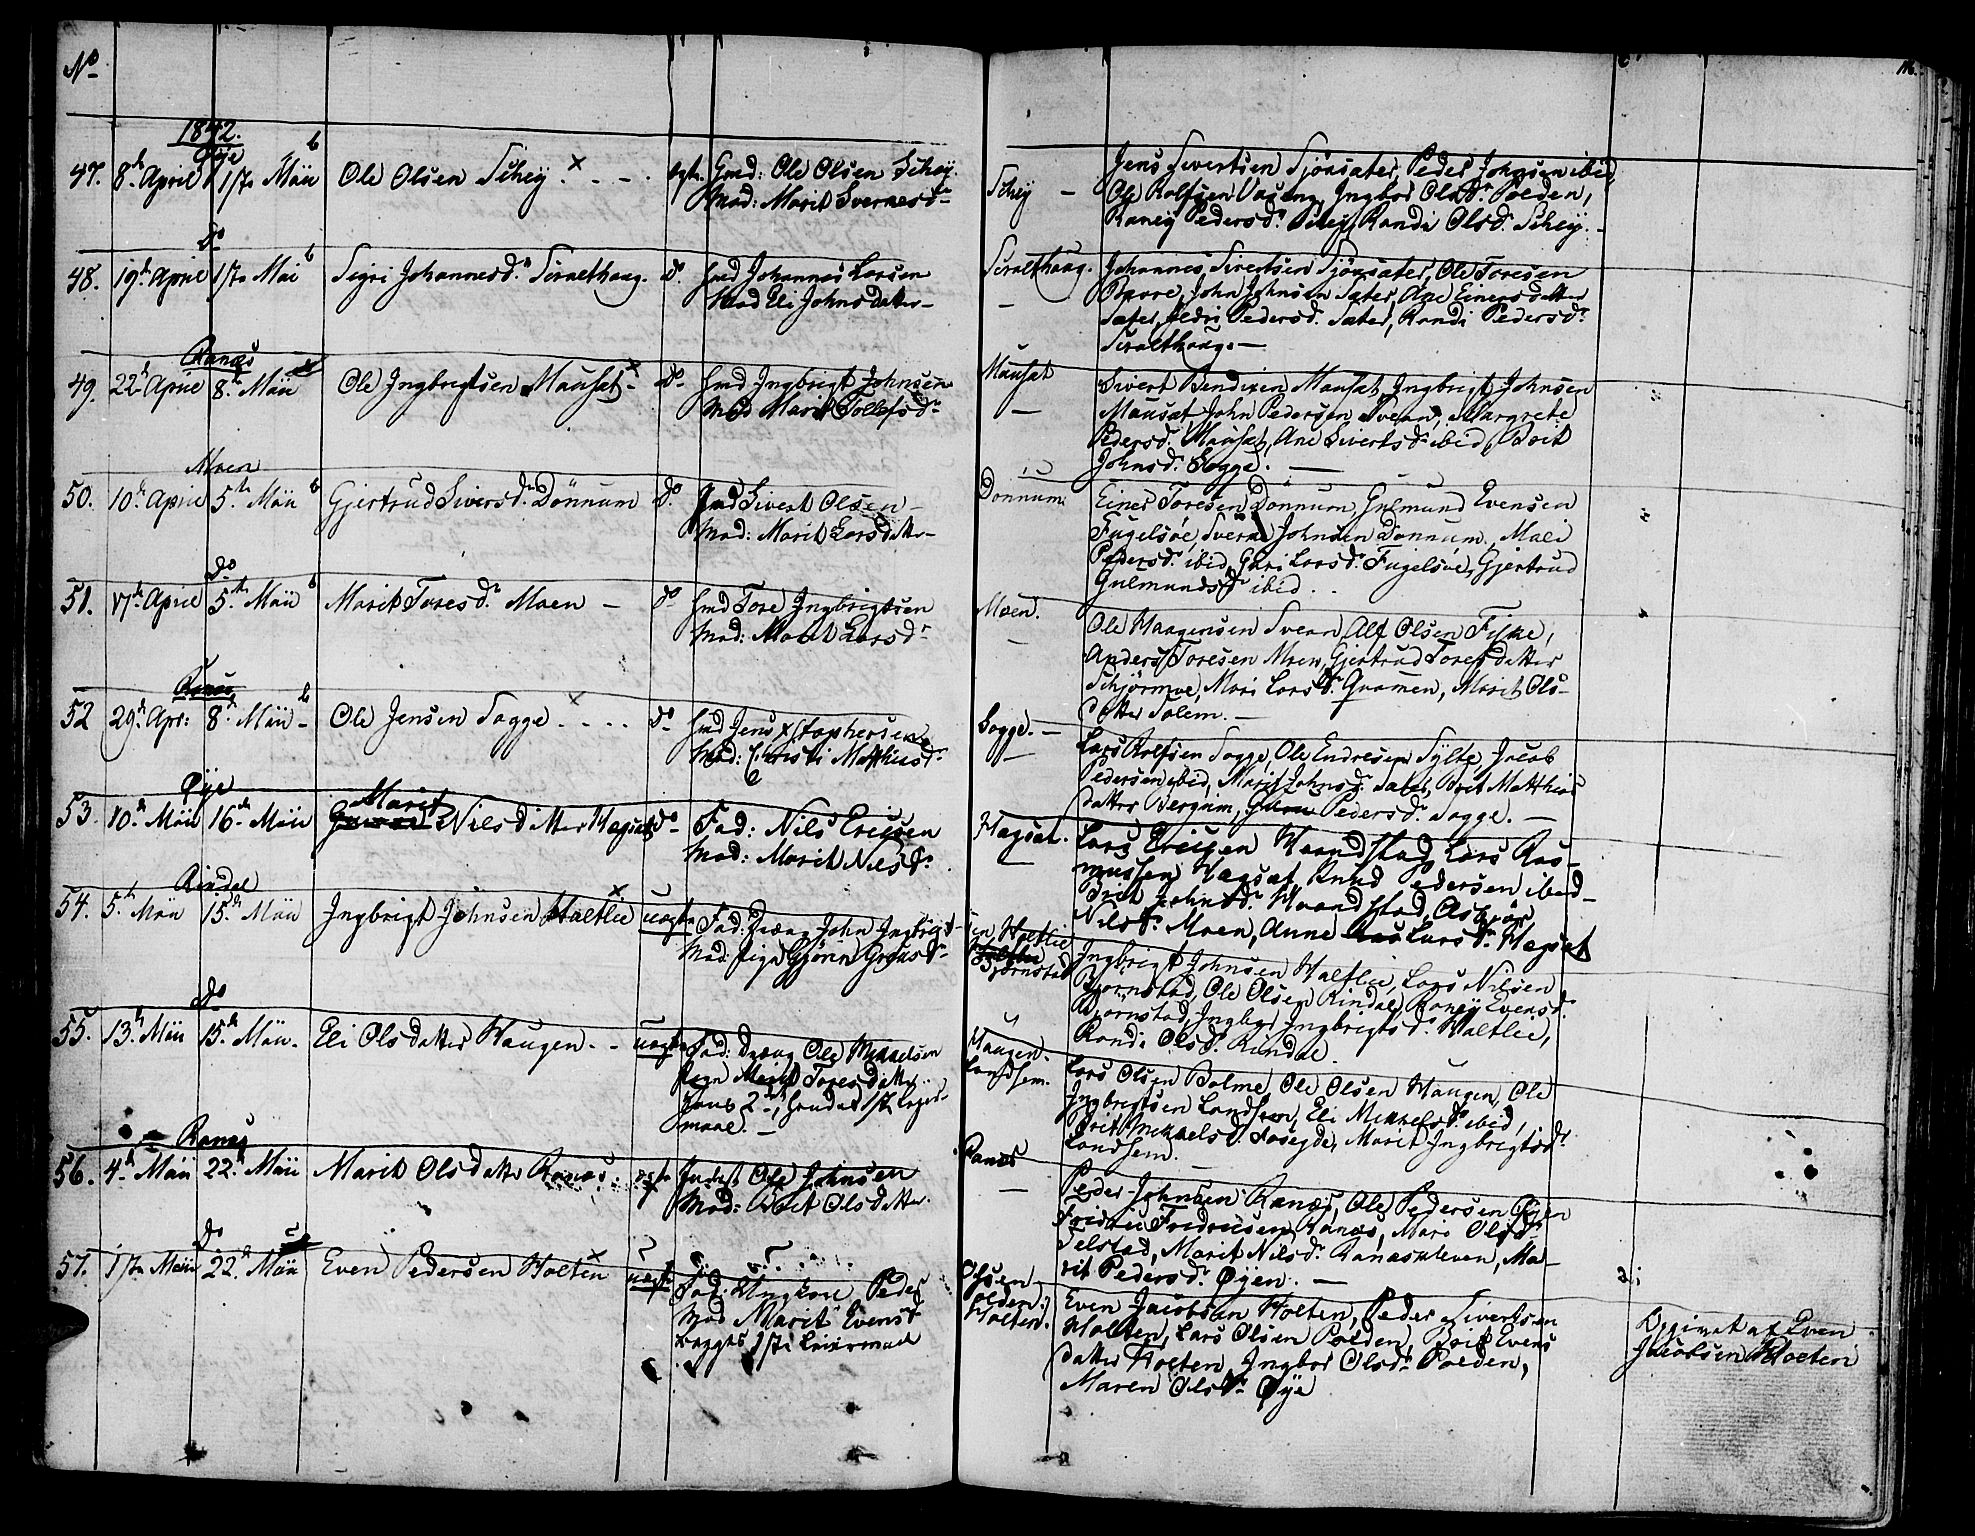 No
116.
1842.
Øÿe
47. 8de April 17de Maii Ole Olsen Schey ægte. Gmd: Ole Olsen Schey
Mod: Marit Sverresdr
Schey
Jens Sivertsen Sjørsæter, Peder Johnsen ibid
Ole Rolfsen Ingbor Olsdr. Polden,
Raney Pedersdr. Randi Olsdr. Schey.
Do
48. 19de April 17de Mai Sigri Johannesdr Do Gmd Johannes Larsen
Mod Eli Johnsdatter
Johannes Sivertsen Sjørsæter, Ole Toresen
John Johnsen Sæter, Ane Einersdatter
Sæter, Pedersdr. Sæter, Randi Pedersdr
Ranæs
49. 22de April 8de Maii Ole Ingbrigtsen Mausæt Do Gmd Ingbrigt Johnsen
Mod Marit Tollefsdr
Mausæt
Sivert Bendixen Mausæt, Ingbrigt Johnsen
Mausæt John Pedersen Svean, Margrete
Pedersdr. Mausæt, Ane Sivertsdr ibid, Brit
Johnsdr. Sogge.
Moen
50. 10de April 5te Maii Gjertrud Siversdr. Dönnum Do Gmd Sivert Olsen
Mod: Marit Larsdatter
Dönnum
Einer Toresen Dönnum, Gulmund Evensen
Fugelsøe, Johnsen Dönnum, Mali
Pedersdr. ibid, Guri Larsdr. Fugelsøe, Gjertrud
Gulmundsdr ibid.
Do
51. 17de April 5te Maii Marit Toresdr. Moen Do Gmd Tore Ingbrigtsen
Mod: Marit Larsdr
Moen.
Ole Haagensen Svean, Alf Olsen Fiske,
Anders Toresen Moen, Gjertrud Toresdatter
Schjørmoe, Mari Larsdr. Qvamen, Marit Ols-
datter Solem.
Ranæs
52 29de Apr: 8de Maii Ole Jensen Sogge Do Gmd Jens Xstophersen
Mod: Christi Matthiusdr
Sogge.
Lars Rolfsen Sogge, Ole Endresen Sylte, Jacob
Pedersen ibid, Marit Johnsdr. Sæter, Brit Matthias
datter Bergum, Pedersdr. Sogge.
Øye
Marit
53. 10de Maii 16de Maii Nilsdatter Hagsæt Do Fad: Nils Ericsen
Mod: Marit Nilsdr.
Hagsæt.
Lars Ericsen Haandstad, Lars Ras-
mussen Hagsæt Knud Pedersen ibid
Brit Johnsdr. Haandstad, Asbjør
Nilsdr. Moen, Anne Larsdr. Hagsæt
Rindal
54. 5te Maii 15de Maii Ingbrigt Johnsen Haltlie uægte Fad: Dreng John Ingbrigt-
Mod: Pige Gjørin Grimsdr
sen Haltlie
Bjørnstad
Ingbrigt Johnsen Haltlie, Lars Nilsen
Bjørnstad, Ole Olsen Rindal, Raney Evensdr.
Bjørnstad, Ingbor Ingbrigtsdr. Haltlie,
Randi Olsdr. Rindal.
Do
55. 13de Maii 15de Maii. Eli Olsdatter Haugen. uægte Fad: Dreng Ole Mikkelsen
Pigen Marit Toresdatter
hans 2det, hendes 1ste Leier-
maal.
Haugen.
Landsem.
Lars Olsen Bolme, Ole Olsen Haugen, Ole
Ingbrigtsen Landsem, Eli Mikkelsdr. ibid,
Brit Mikkelsdr. Fosegde, Marit Ingbrigtsdr
Landsem.
Ranæs
56. 4de Maii 22de Maii Marit Olsdatter Ranæs. ægte Inderst Ole Johnsen
Mod: Brit Olsdatter.
Ranæs
Peder Johnsen Ranæs, Ole Pedersen Øyen
Fredricsen Ranæs, Mari Olsdr
Telstad, Marit Nilsdr. Ranæskleven, Ma-
rit Pedersdr. Øyen.
Do
57. 17de Maii 22de Maii Even Pedersen Holten uægte Fad: Ungkarl Peder
Mod Marit Evensdr
begges 1ste Leiermaal
Olsen
Polden
Holten.
Even Jacobsen Holten, Peder Sivertsen
Holten, Lars Olsen Polden, Brit Evens
datter Holten, Ingbor Olsdr. Polden,
Maren Olsdr. Øye
Opgivet af Even
Jacobsen Holten